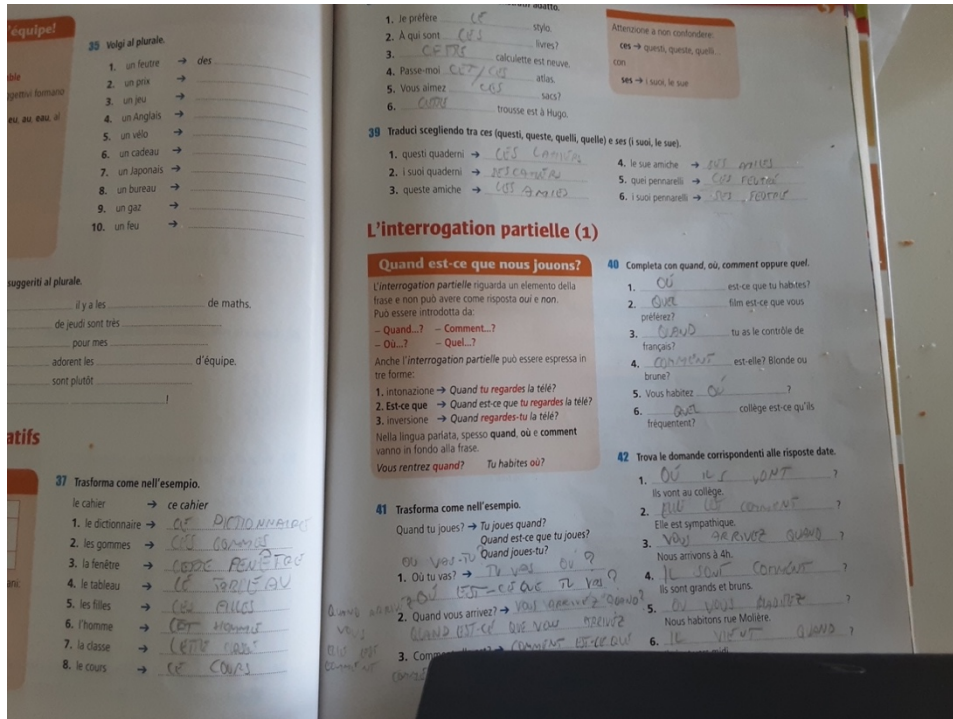 'équipe!
35 Volgi al plurale.
1. un feutre → des
2. un prix →
3. un jeu →
4. un Anglais →
5. un vélo →
6. un cadeau →
7. un Japonais →
8. un bureau →
9. un gaz →
10. un feu →
ggettivi formano
eu, au, eau, al
suggeriti al plurale.
il y a les de maths.
de jeudi sont très
pour mes
adorent les d'équipe.
sont plutôt
!
atifs
37 Trasforma come nell'esempio.
le cahier → ce cahier
1. le dictionnaire → CE DICTIONNAIRE
2. les gommes → CES GOMMES
3. la fenêtre → FENÊTRE
4. le tableau → CE TABLEAU
5. les filles → CES FILLES
6. l'homme → CET HOMME
7. la classe → CETTE
8. le cours → CE COURS
adatto.
1. Je préfère CE stylo.
2. À qui sont CES livres?
3. calculette est neuve.
4. Passe-moi CET/CES atlas.
5. Vous aimez CES sacs?
6. trousse est à Hugo.
Attenzione a non confondere:
ces → questi, queste, quelli
con
ses → i suoi, le sue
39 Traduci scegliendo tra ces (questi, queste, quelli, quelle) e ses (i suoi, le sue).
1. questi quaderni → CES
2. i suoi quaderni →
3. queste amiche → CES AMIES
4. le sue amiche → SES
5. quei pennarelli → CES
6. i suoi pennarelli → SES
L'interrogation partielle (1)
Quand est-ce que nous jouons?
L'interrogation partielle riguarda un elemento della
frase e non può avere come risposta oui e non.
Può essere introdotta da:
– Quand...? – Comment...?
– Où...? – Quel...?
Anche l'interrogation partielle può essere espressa in
tre forme:
1. intonazione → Quand tu regardes la télé?
2. Est-ce que → Quand est-ce que tu regardes la télé?
3. inversione → Quand regardes-tu la télé?
Nella lingua parlata, spesso quand, où e comment
vanno in fondo alla frase.
Vous rentrez quand? Tu habites où?
40 Completa con quand, où, comment oppure quel.
1. OÙ est-ce que tu habites?
2. QUEL film est-ce que vous
préférez?
3. QUAND tu as le contrôle de
français?
4. COMMENT est-elle? Blonde ou
brune?
5. Vous habitez OÙ ?
6. QUEL collège est-ce qu'ils
fréquentent?
41 Trasforma come nell'esempio.
Quand tu joues? → Tu joues quand?
Quand est-ce que tu joues?
Quand joues-tu?
OÙ VAS-TU?
1. Où tu vas? → TU VAS OÙ?
OÙ EST-CE QUE TU VAS?
2. Quand vous arrivez? → VOUS ARRIVEZ QUAND?
QUAND EST-CE QUE VOUS ARRIVEZ
QUAND
VOUS
3. Comm → COMMENT EST-CE QUE
COMMENT
42 Trova le domande corrispondenti alle risposte date.
1. OÙ ILS VONT ?
Ils vont au collège.
2. ELLE EST COMMENT ?
Elle est sympathique.
3. VOUS ARRIVEZ QUAND ?
Nous arrivons à 4h.
4. IL SONT COMMENT ?
Ils sont grands et bruns.
5. OÙ VOUS HABITEZ ?
Nous habitons rue Molière.
6. IL VIENT QUAND ?
midi.